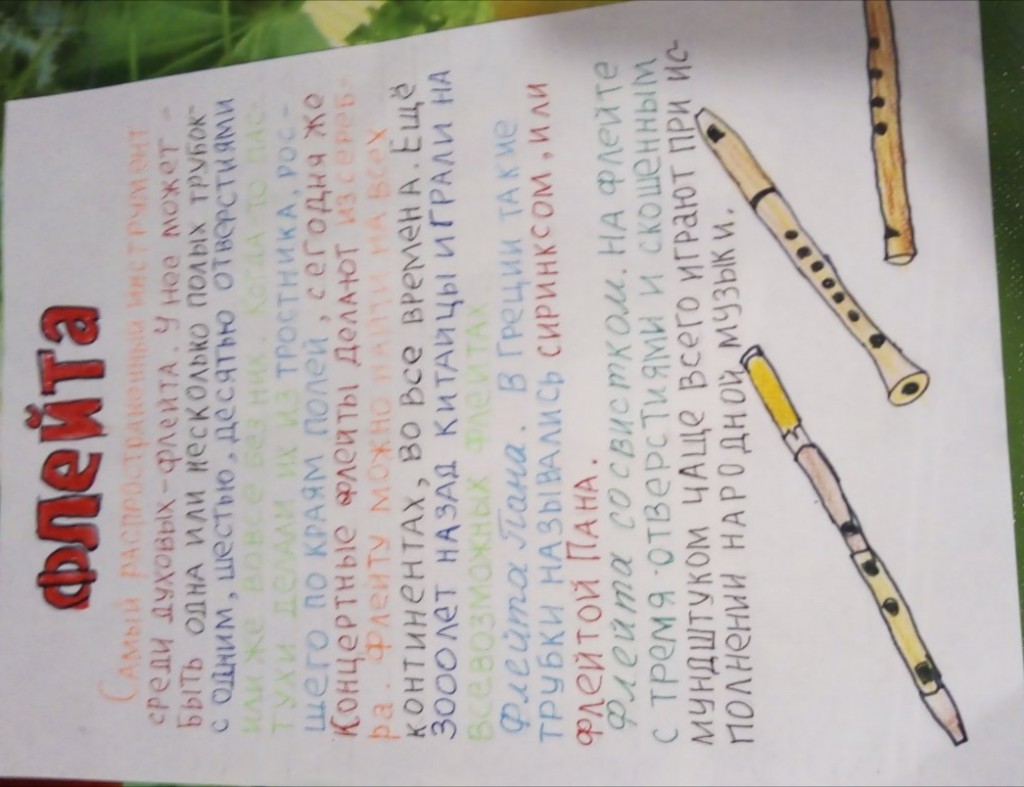 Флейта
Самый распространённый инструмент
среди духовых-флейта. У неё может
быть одна или несколько полых трубок
с одним, шестью, десятью отверстиями
или же вовсе без них. Когда-то пас-
тухи делали их из тростника, рос-
щего по краям полей, сегодня же
Концертные флейты делают из сереб-
ра. Флейту можно найти на всех
континентах, во все времена. Ещё
3000лет назад китайцы играли на
всевозможных флейтах
Флейта Пана. В Греции такие
трубки назывались сиринксом, или
флейтой Пана.
Флейта со свистком. На флейте
с тремя отверстиями и скошенным
мундштуком чаще всего играют при ис-
полнении народной музыки.